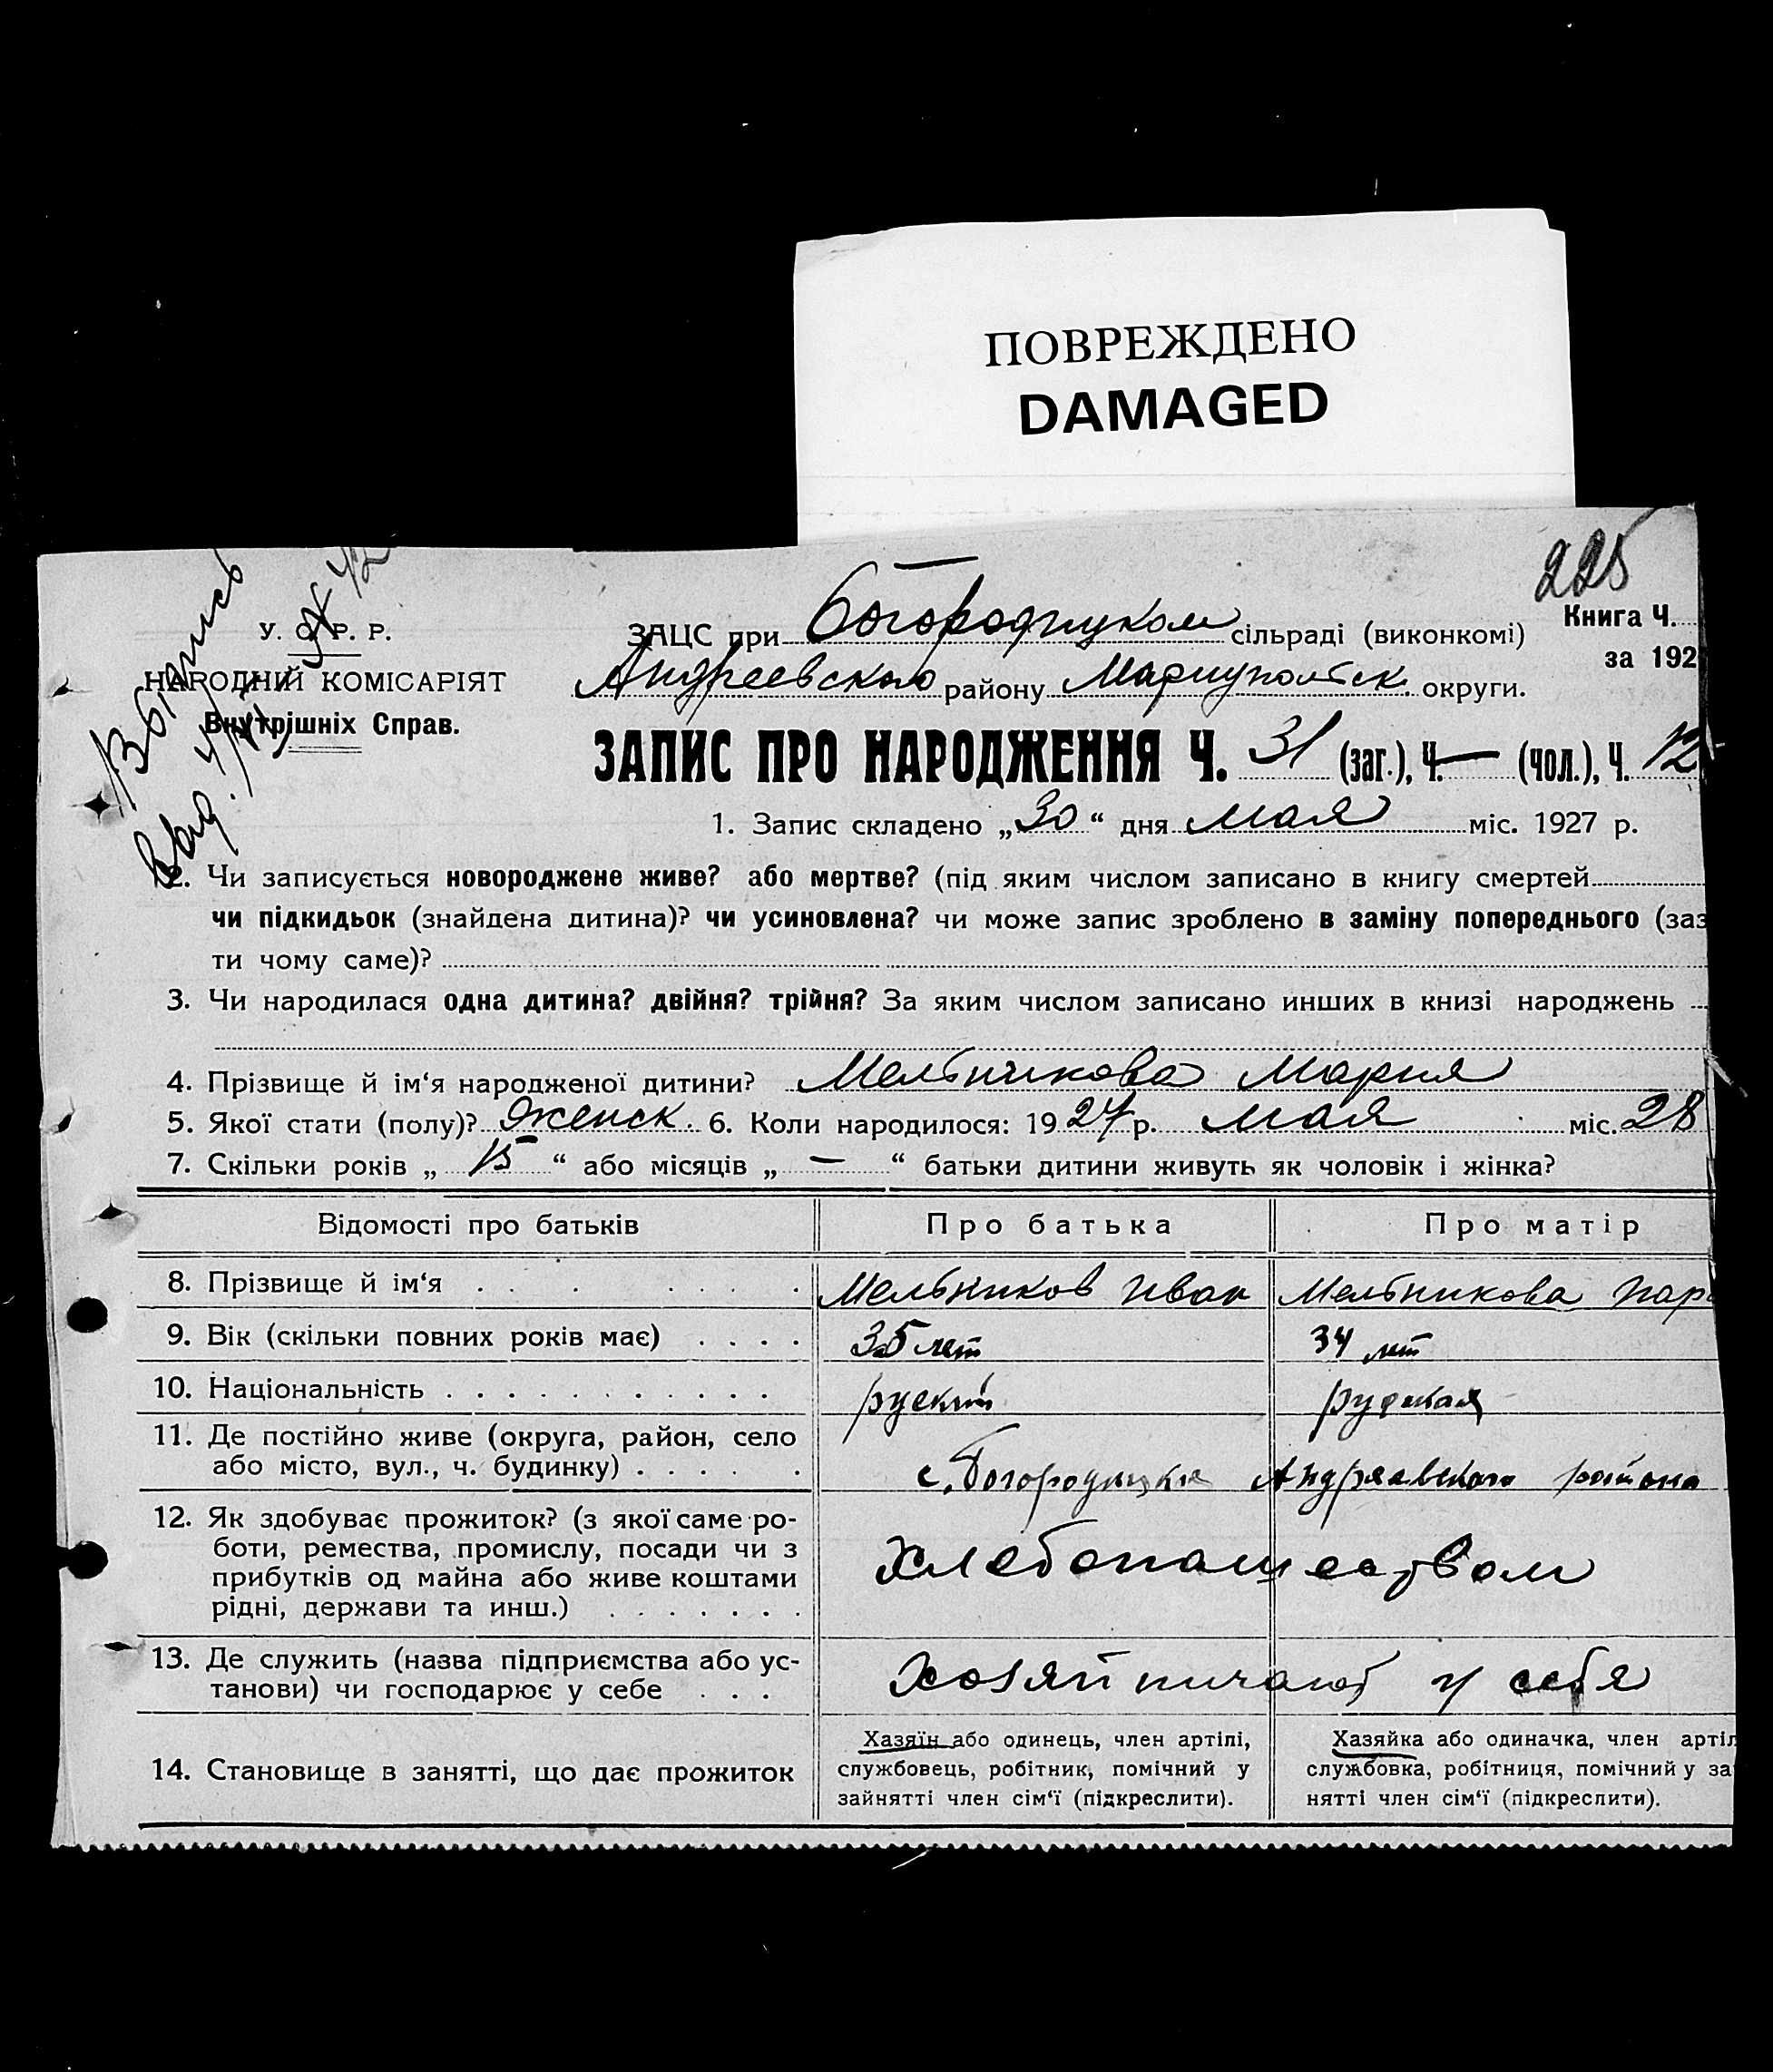 ПОВРЕЖДЕНО
DAMAGED
225
Выпись
У. С. Р. Р.
НАРОДНИЙ КОМІСАРІЯТ
Внутрішніх Справ.
Книга Ч.
за 192
ЗАЦС при Богородицком сільраді (виконкомі)
Андреевского району Мариупольск. округи.
ЗАПИС ПРО НАРОДЖЕННЯ Ч. 31 (заг.), Ч. — (чол.), Ч. 12
1. Запис складено „30“ дня мая міс. 1927 р.
2. Чи записується новороджене живе? або мертве? (під яким числом записано в книгу смертей
чи підкидьок (знайдена дитина)? чи усиновлена? чи може запис зроблено в заміну попереднього (заз
ти чому саме)?
3. Чи народилася одна дитина? двійня? трійня? За яким числом записано инших в книзі народжень
4. Прізвище й ім‘я народженої дитини? Мельникова Мария
5. Якої стати (полу)? Женск. 6. Коли народилося: 1927 р. мая міс. 28
7. Скільки років „ 15 “ або місяців „ — “ батьки дитини живуть як чоловік і жінка?
Відомості про батьків Про батька Про матір
8. Прізвище й ім‘я Мельников Иван Мельникова Пар
9. Вік (скільки повних років має) 35 лет 34 лет
10. Національність руский руская
11. Де постійно живе (округа, район, село
або місто, вул., ч. будинку) с. Богородицке Андреевского района
12. Як здобуває прожиток? (з якої саме ро-
боти, ремества, промислу, посади чи з
прибутків од майна або живе коштами
рідні, держави та инш.)
Хлебопашеством
13. Де служить (назва підприємства або ус-
танови) чи господарює у себе
хозяйничают у себя
14. Становище в занятті, що дає прожиток
Хазяїн або одинець, член артілі,
службовець, робітник, помічний у
зайнятті член сім‘ї (підкреслити).
Хазяйка або одиначка, член артіл
службовка, робітниця, помічний у за
нятті член сім‘ї (підкреслити).